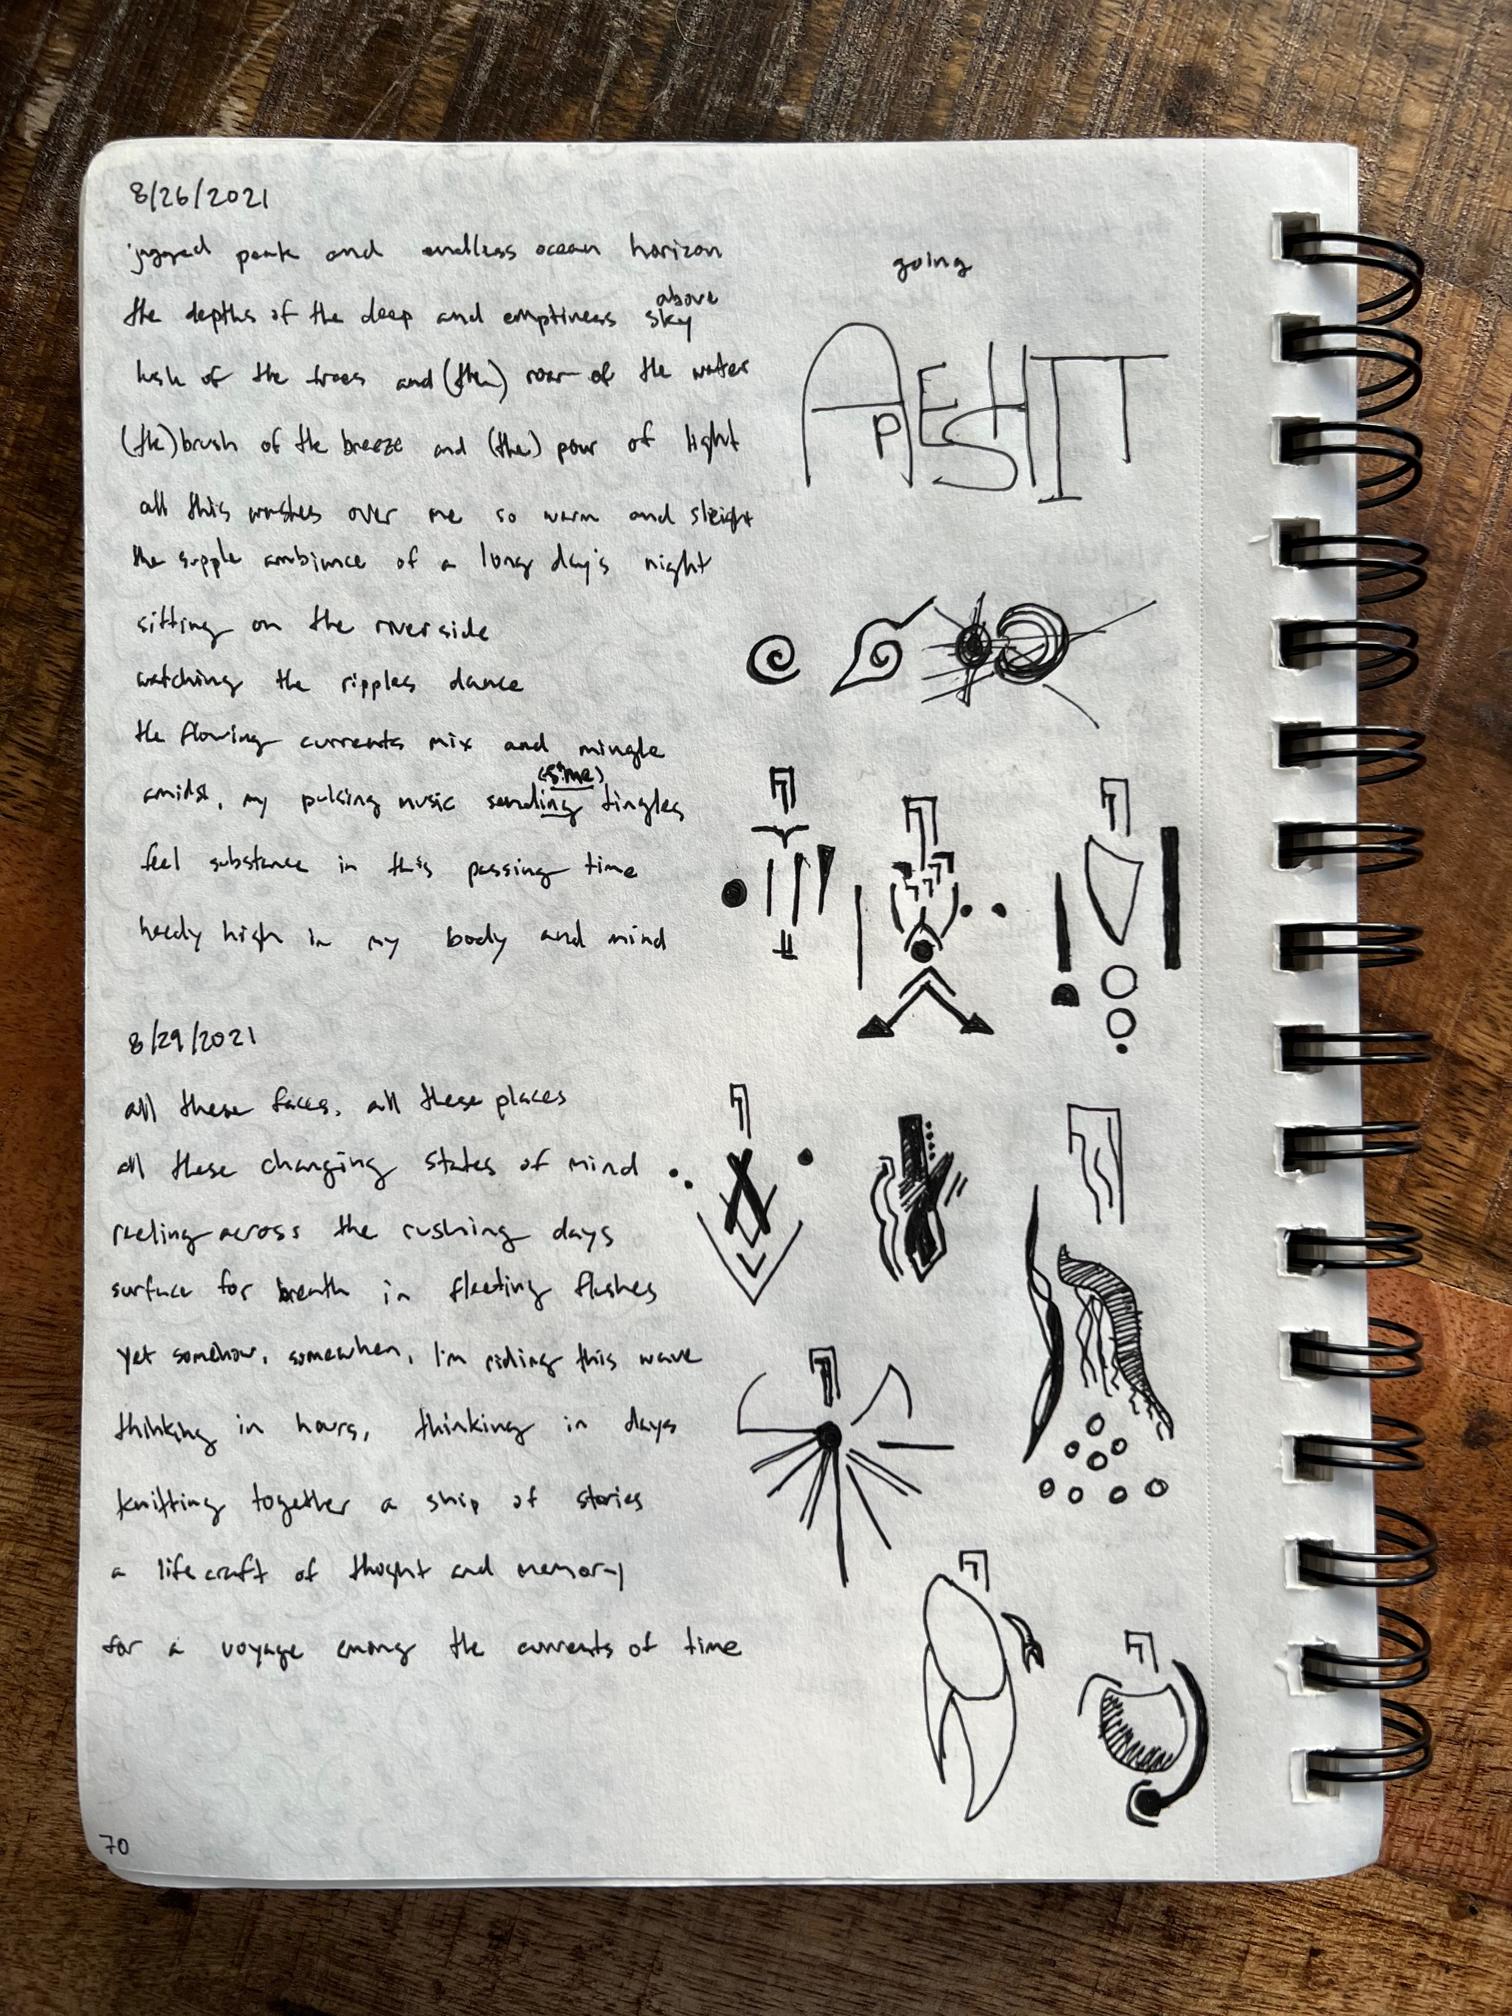 8/26/2021
jagged peak and endless ocean horizon
above
the depths of the deep and emptiness sky
hush of the trees and (the) roar of the water
(the) brush of the breeze and (the) pour of light
all this washes over me so warm and
the supple ambiance of a long day's night
sitting on the riverside
watching the ripples dance
the flowing currents mix and mingle
(some)
amidst, my pulsing music sending tingles
feel substance in this passing time
heady high in my body and mind
8/29/2021
all these faces, all these places
all these changing states of mind
reeling across the rushing days
surface for breath in fleeting flashes
yet somehow, somewhen, I'm riding this wave
thinking in hours, thinking in days
knitting together a ship of stories
a lifecraft of thoght and memory
for a voyage among the currents of time
70
going
APESHIT